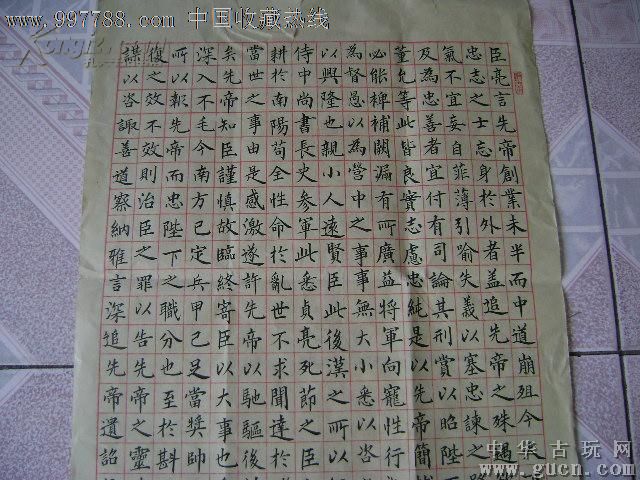 www.997788.com 中国收藏热线
臣亮言先帝創業未半而中道崩殂今天
忠志之士忘身於外者蓋追先帝之殊遇
氣不宜妄自菲薄引喻失義以塞忠諫之路
及為忠善者宜付有司論其刑賞以昭陛
董允等此皆良實志慮忠純是以先帝簡
必能裨補闕漏有所廣益將軍向寵性行
為督愚以為營中之事事無大小悉以咨
以興隆也親小人遠賢臣此後漢之所以
侍中尚書長史參軍此悉貞亮死節之臣
耕於南陽苟全性命於亂世不求聞達於
當世之事由是感激遂許先帝以馳驅後
矣先帝知臣謹慎故臨終寄臣以大事也
深入不毛今南方已定兵甲已足當獎帥
所以報先帝而忠陛下之職分也至於斟
復之效不效則治臣之罪以告先帝之靈
謀以咨諏善道察納雅言深追先帝遺詔
中华古玩网
www.gucn.com